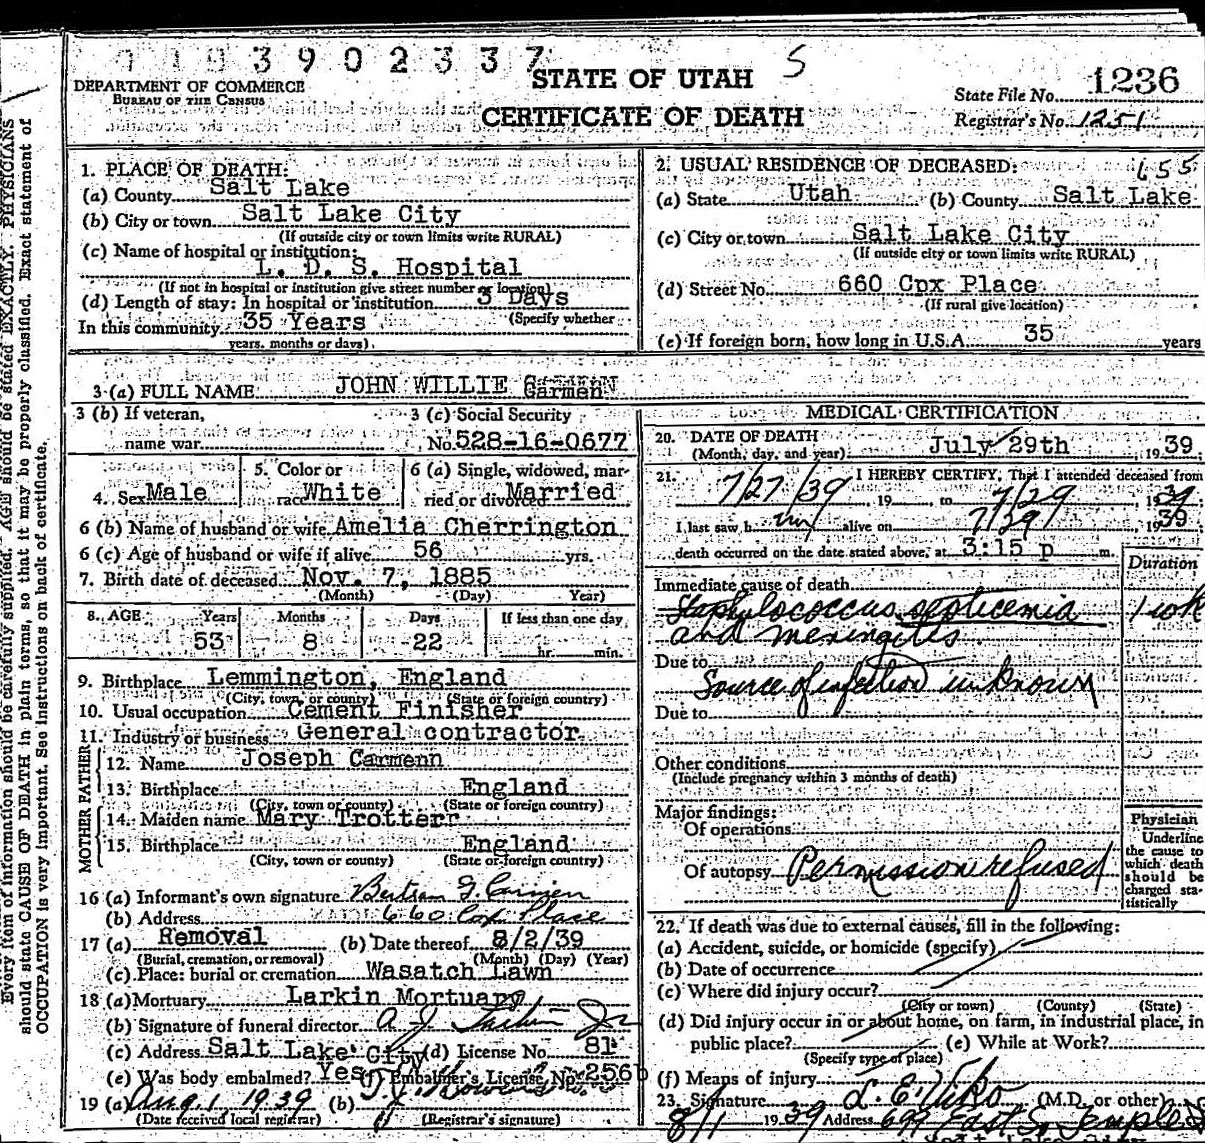 3 9 0 2 3 3 7
STATE OF UTAH
S
1236
DEPARTMENT OF COMMERCE
BUREAU OF THE CENSUS
CERTIFICATE OF DEATH
State File No.
Registrar's No. 1251
1. PLACE OF DEATH:
(a) County Salt Lake
(b) City or town Salt Lake City
(If outside city or town limits write RURAL)
(c) Name of hospital or institution:
L. D. S. Hospital
(If not in hospital or institution give street number or location)
(d) Length of stay: In hospital or institution 3 Days
(Specify whether
In this community 35 Years
years, months or days)
2. USUAL RESIDENCE OF DECEASED: 655
(a) State Utah (b) County Salt Lake
(c) City or town Salt Lake City
(If outside city or town limits write RURAL)
(d) Street No. 660 Cpx Place
(If rural give location)
(e) If foreign born, how long in U.S.A. 35 years
3 (a) FULL NAME JOHN WILLIE Carmen
3 (b) If veteran,
name war
3 (c) Social Security
No. 528-16-0677
4. Sex Male
5. Color or
race White
6 (a) Single, widowed, mar-
ried or divorced Married
6 (b) Name of husband or wife Amelia Cherrington
6 (c) Age of husband or wife if alive 56 yrs.
7. Birth date of deceased Nov. 7, 1885
(Month) (Day) Year)
8. AGE: Years Months Days If less than one day
53 8 22 hr. min.
9. Birthplace Lemmington, England
(City, town, or county) (State or foreign country)
10. Usual occupation Cement Finisher
11. Industry or business General contractor
FATHER
12. Name Joseph Carmenn
13. Birthplace England
(City, town or county) (State or foreign country)
MOTHER
14. Maiden name Mary Trotterr
15. Birthplace England
(City, town or county) (State or foreign country)
16 (a) Informant's own signature Bertram G. Carmen
(b) Address 660 Cox Place
17 (a) Removal (b) Date thereof 8/2/39
(Burial, cremation, or removal) (Month) (Day) (Year)
(c) Place: burial or cremation Wasatch Lawn
18 (a) Mortuary Larkin Mortuary
(b) Signature of funeral director A J Larkin Jr
(c) Address Salt Lake City (d) License No. 81
(e) Was body embalmed? Yes (f) Embalmer's License No. 256b
19 (a) Aug. 1, 1939 (b)
(Date received local registrar) (Registrar's signature)
MEDICAL CERTIFICATION
20. DATE OF DEATH
(Month, day, and year) July 29th 19 39
21. I HEREBY CERTIFY, That I attended deceased from
7/27/39, 19 to 7/29, 19 39
I last saw h im alive on 7/29, 19 39
death occurred on the date stated above, at 3:15 p m.
Duration
Immediate cause of death
Staphylococcus septicemia 1 wk
and meningitis
Due to
Source of infection unknown
Due to
Other conditions
(Include pregnancy within 3 months of death)
Major findings:
Of operations
Of autopsy Permission refused
Physician
Underline
the cause to
which death
should be
charged sta-
tistically
22. If death was due to external causes, fill in the following:
(a) Accident, suicide, or homicide (specify)
(b) Date of occurrence
(c) Where did injury occur?
(City or town) (County) (State)
(d) Did injury occur in or about home, on farm, in industrial place, in
public place? (e) While at Work?
(Specify type of place)
(f) Means of injury
23. Signature L. E. Viko (M.D. or other)
8/1 19 39 Address 699 East So Temple
Every item of information should be carefully supplied. AGE should be stated EXACTLY. PHYSICIANS
should state CAUSE OF DEATH in plain terms, so that it may be properly classified. Exact statement of
OCCUPATION is very important. See Instructions on back of certificate.